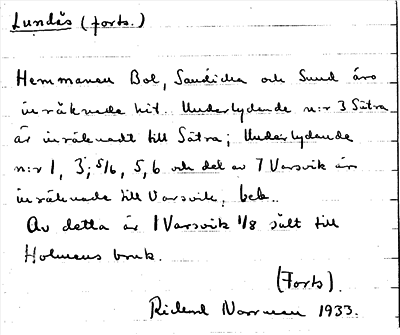 Lundås (forts.)
Hemmanen Bol, Sandika och Sund äro
inräknade hit. Underlydande n:r 3 Sätra
är inräknadt till Sätra; Underlydande
n:r 1, 3, 5/6, 5, 6 och del av 7 Varsvik är
inräknade till Varsvik, bek..
Av detta är 1 Varsvik 1/8 sålt till
Holmens bruk.
(Forts).
Rickard Norrman 1933.